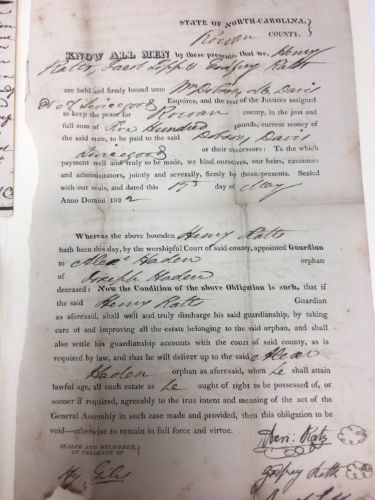 STATE OF NORTH-CAROLINA,
Rowan COUNTY.
KNOW ALL MEN by these presents that we, Henry
Ratts, Jacob Lopp & Godfrey Ratts
are held and firmly bound unto Wm Dobson, Davis
Esquires, and the rest of the Justices assigned
to keep the peace for Rowan county, in the just and
full sum of Five Hundred pounds, current money of
the said state, to be paid to the said Dobson, Davis
or their successors: To the which
payment well and truly to be made, we bind ourselves, our heirs, executors
and administrators, jointly and severally, firmly by these presents. Sealed
with our seals, and dated this day of May
Anno Domini 1822
Whereas the above bounden Henry Ratts
hath been this day, by the worshipful Court of said county, appointed Guardian
to Alexr Haden orphan
of Joseph Haden
deceased: Now the Condition of the above Obligation is such, that if
the said Henry Ratts Guardian
as aforesaid, shall well and truly discharge his said guardianship, by taking
care of and improving all the estate belonging to the said orphan, and shall
also settle his guardianship accounts with the court of said county, as is
required by law, and that he will deliver up to the said Alexr
Haden orphan as aforesaid, when he shall attain
lawful age, all such estate as he ought of right to be possessed of, or
sooner if required, agreeably to the true intent and meaning of the act of
the General Assembly in such case made and provided, then this obligation to be
void—otherwise to remain in full force and virtue.
SEALED AND DELIVERED,
IN PRESENCE OF
Hy Giles
Godfrey Ratts